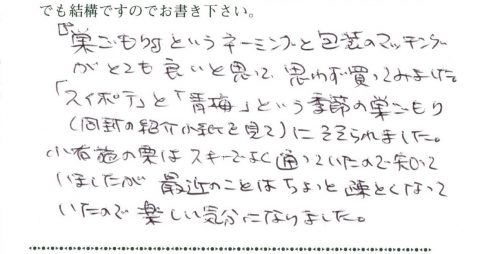 でも結構ですのでお書き下さい。
『巣ごもり』というネーミングと包装のマッチング
がとても良いと思って 思わず買ってみました。
「スイポテ」と「青梅」という季節の巣ごもり
(同封の紹介小紙を見て)にそそられました。
小布施の栗はスキーでよく通っていたので知って
いましたが 最近のことはちょっと疎くなって
いたので楽しい気分になりました。